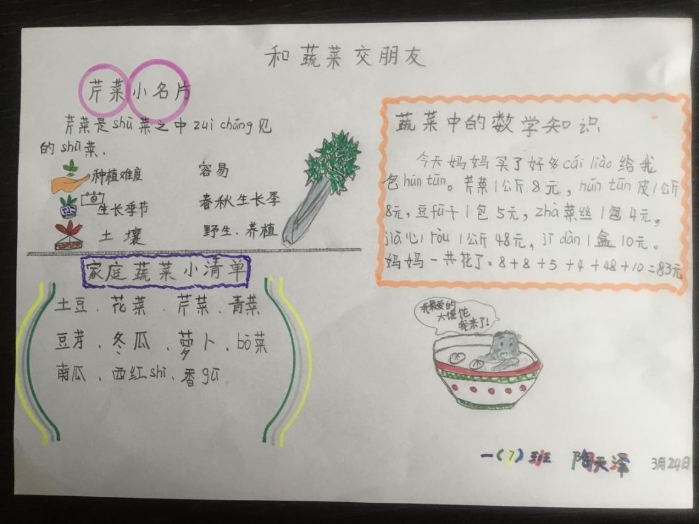 和蔬菜交朋友
芹菜小名片
芹菜是shū菜之中zuì cháng见
的shū菜.
种植难度 容易
生长季节 春秋生长季
土壤 野生、养植
家庭蔬菜小清单
土豆、花菜、芹菜、青菜
豆芽、冬瓜、萝卜、bō菜
南瓜、西红shì、香gū
蔬菜中的数学知识
今天妈妈买了好多cái liào给我
包hún tūn。芹菜1公斤8元,hún tūn皮1公斤
8元,豆fǔ干1包5元,zhà菜丝1包4元。
1公斤48元,jī dàn1盒10元。
妈妈一共花了:8+8+5+4+48+10=83元
我最爱的
大馄饨
我来了!
一(7)班 陶天泽 3月24日